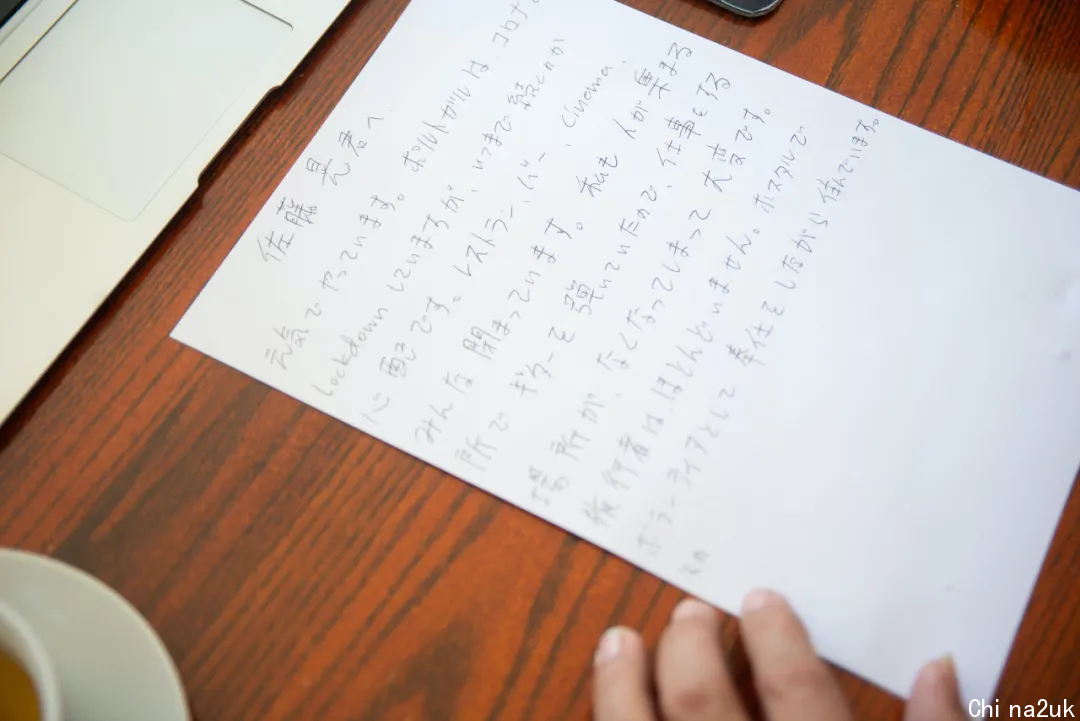 佐藤 晃 君へ
元気でやっています。ポルトガルは コロナの
Lockdown していますが、いつまで続くのか
心配です。レストラン、バー、Cinema、
みんな 閉まっています。私も 人が 集まる
所で ギターを 弾いていたので、仕事をする
場所が、なくなってしまって 大変です。
旅行者は、ほとんどいません。ホスタルで
ボランティアとして 奉仕をしながら 住んでいます。
Chi na2uk